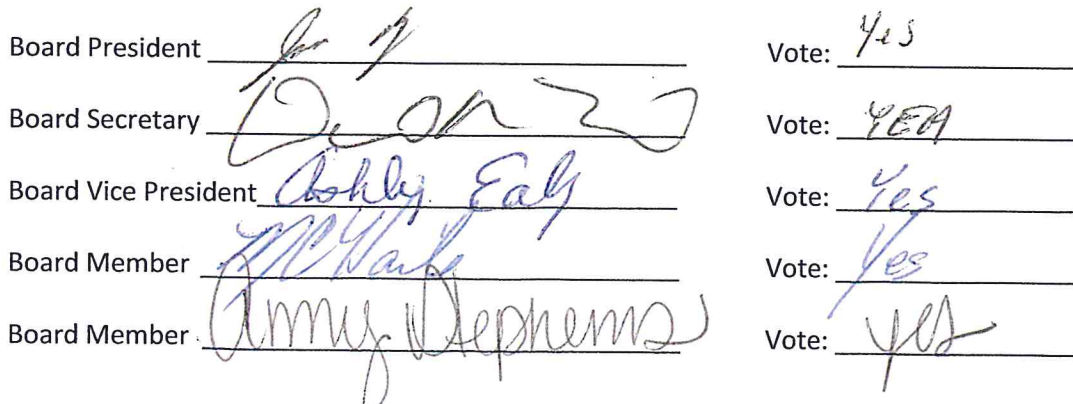 Board President Vote: Yes
Board Secretary Vote: YEA
Board Vice President Ashley Ealy Vote: Yes
Board Member Vote: Yes
Board Member Amy Stephens Vote: yes